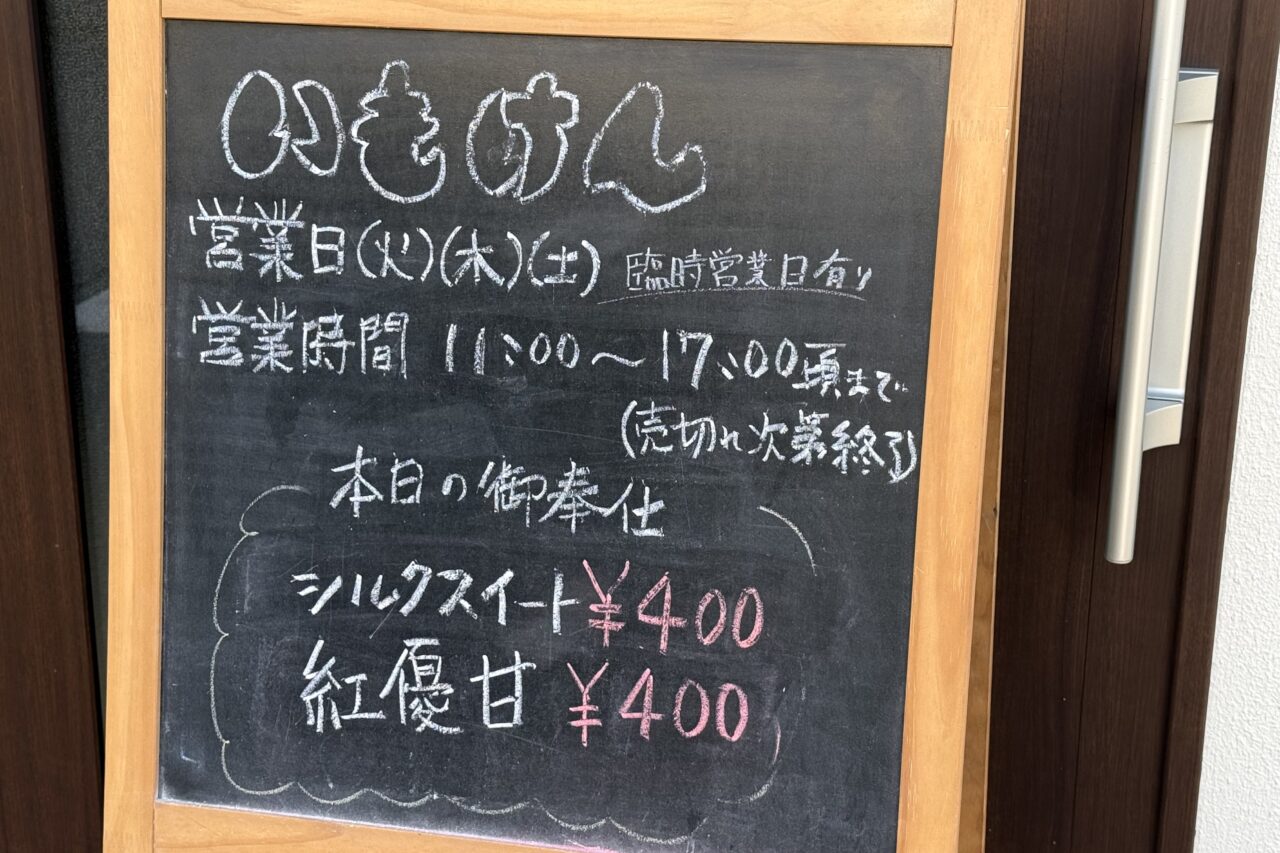 いもけん
営業日(火)(木)(土) 臨時営業日有り
営業時間 11:00～17:00頃まで
(売切れ次第終了)
本日の御奉仕
シルクスイート ¥400
紅優甘 ¥400